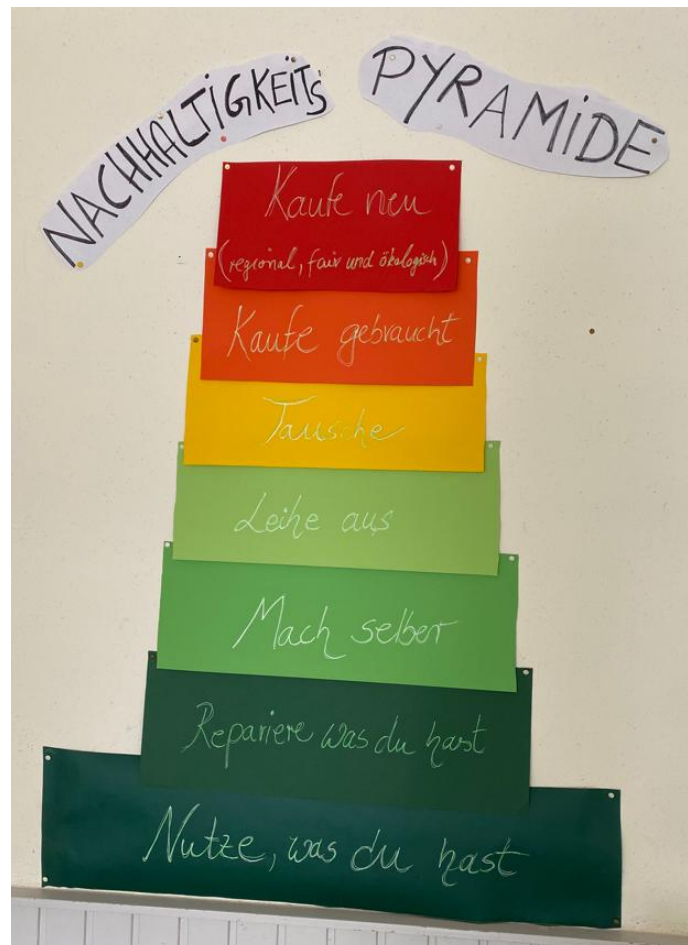 NACHHALTIGKEITS
PYRAMIDE
Kaufe neu
(regional, fair und ökologisch)
Kaufe gebraucht
Tausche
Leihe aus
Mach selber
Repariere was du hast
Nutze, was du hast